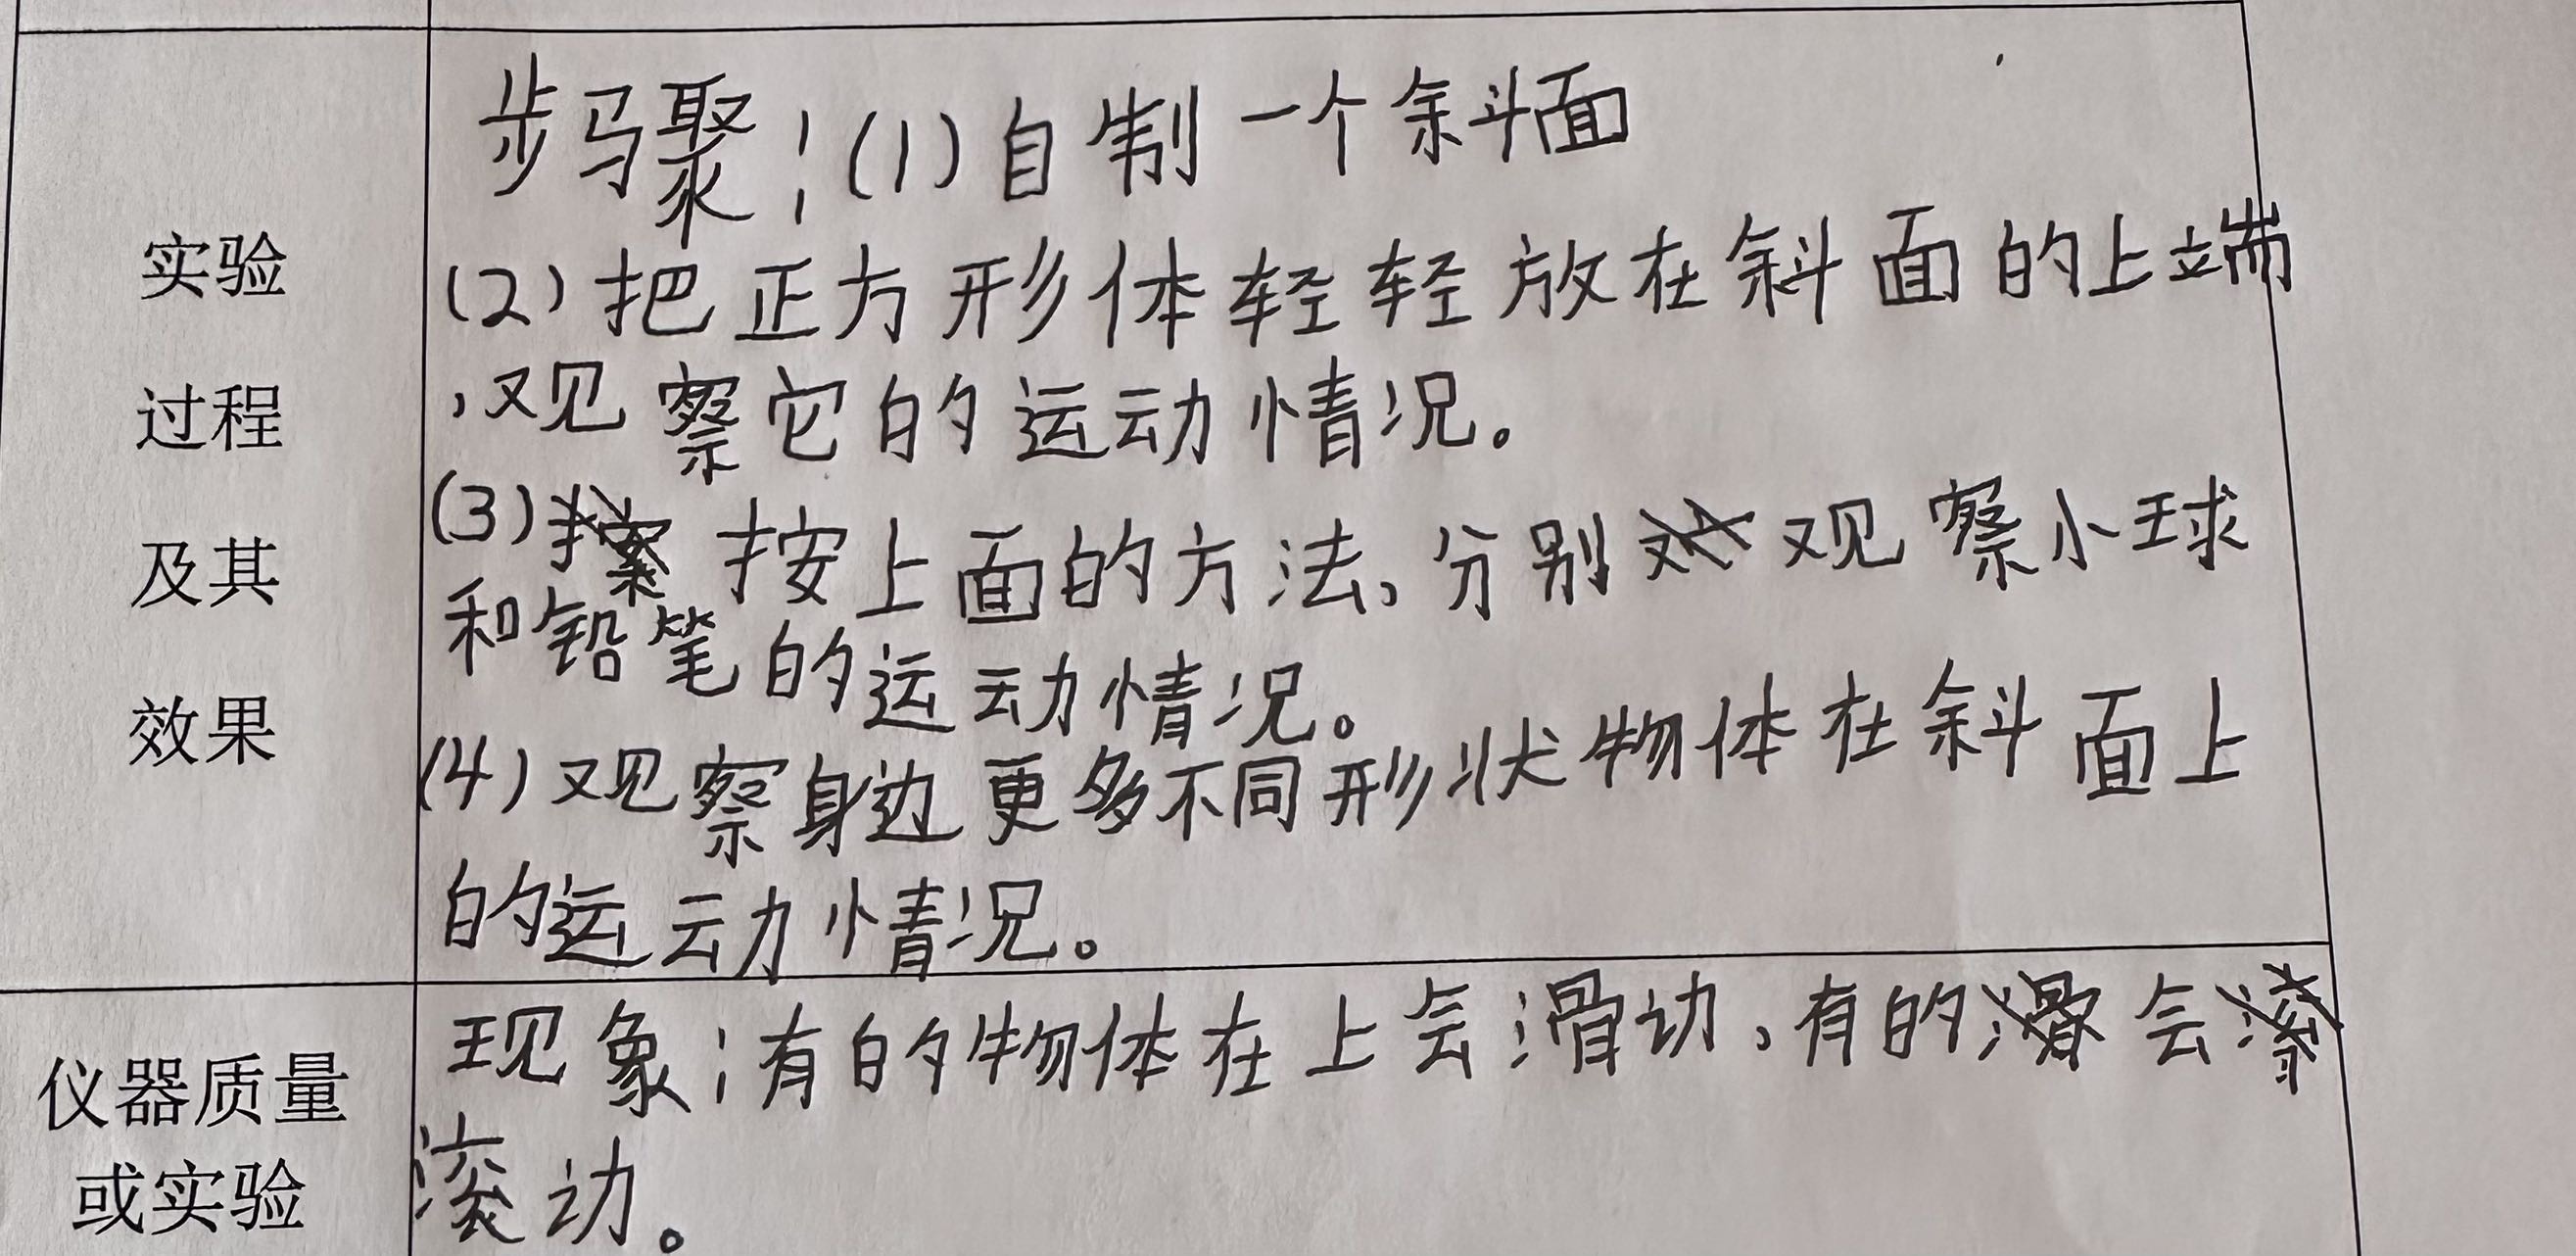 步骤:(1)自制一个斜面
实验
(2)把正方形体轻轻放在斜面的上端
过程
,观察它的运动情况。
及其
(3)按上面的方法,分别观察小球
和铅笔的运动情况。
效果
(4)观察身边更多不同形状物体在斜面上
的运动情况。
仪器质量
或实验
现象:有的物体在上会滑动,有的会
滚动。